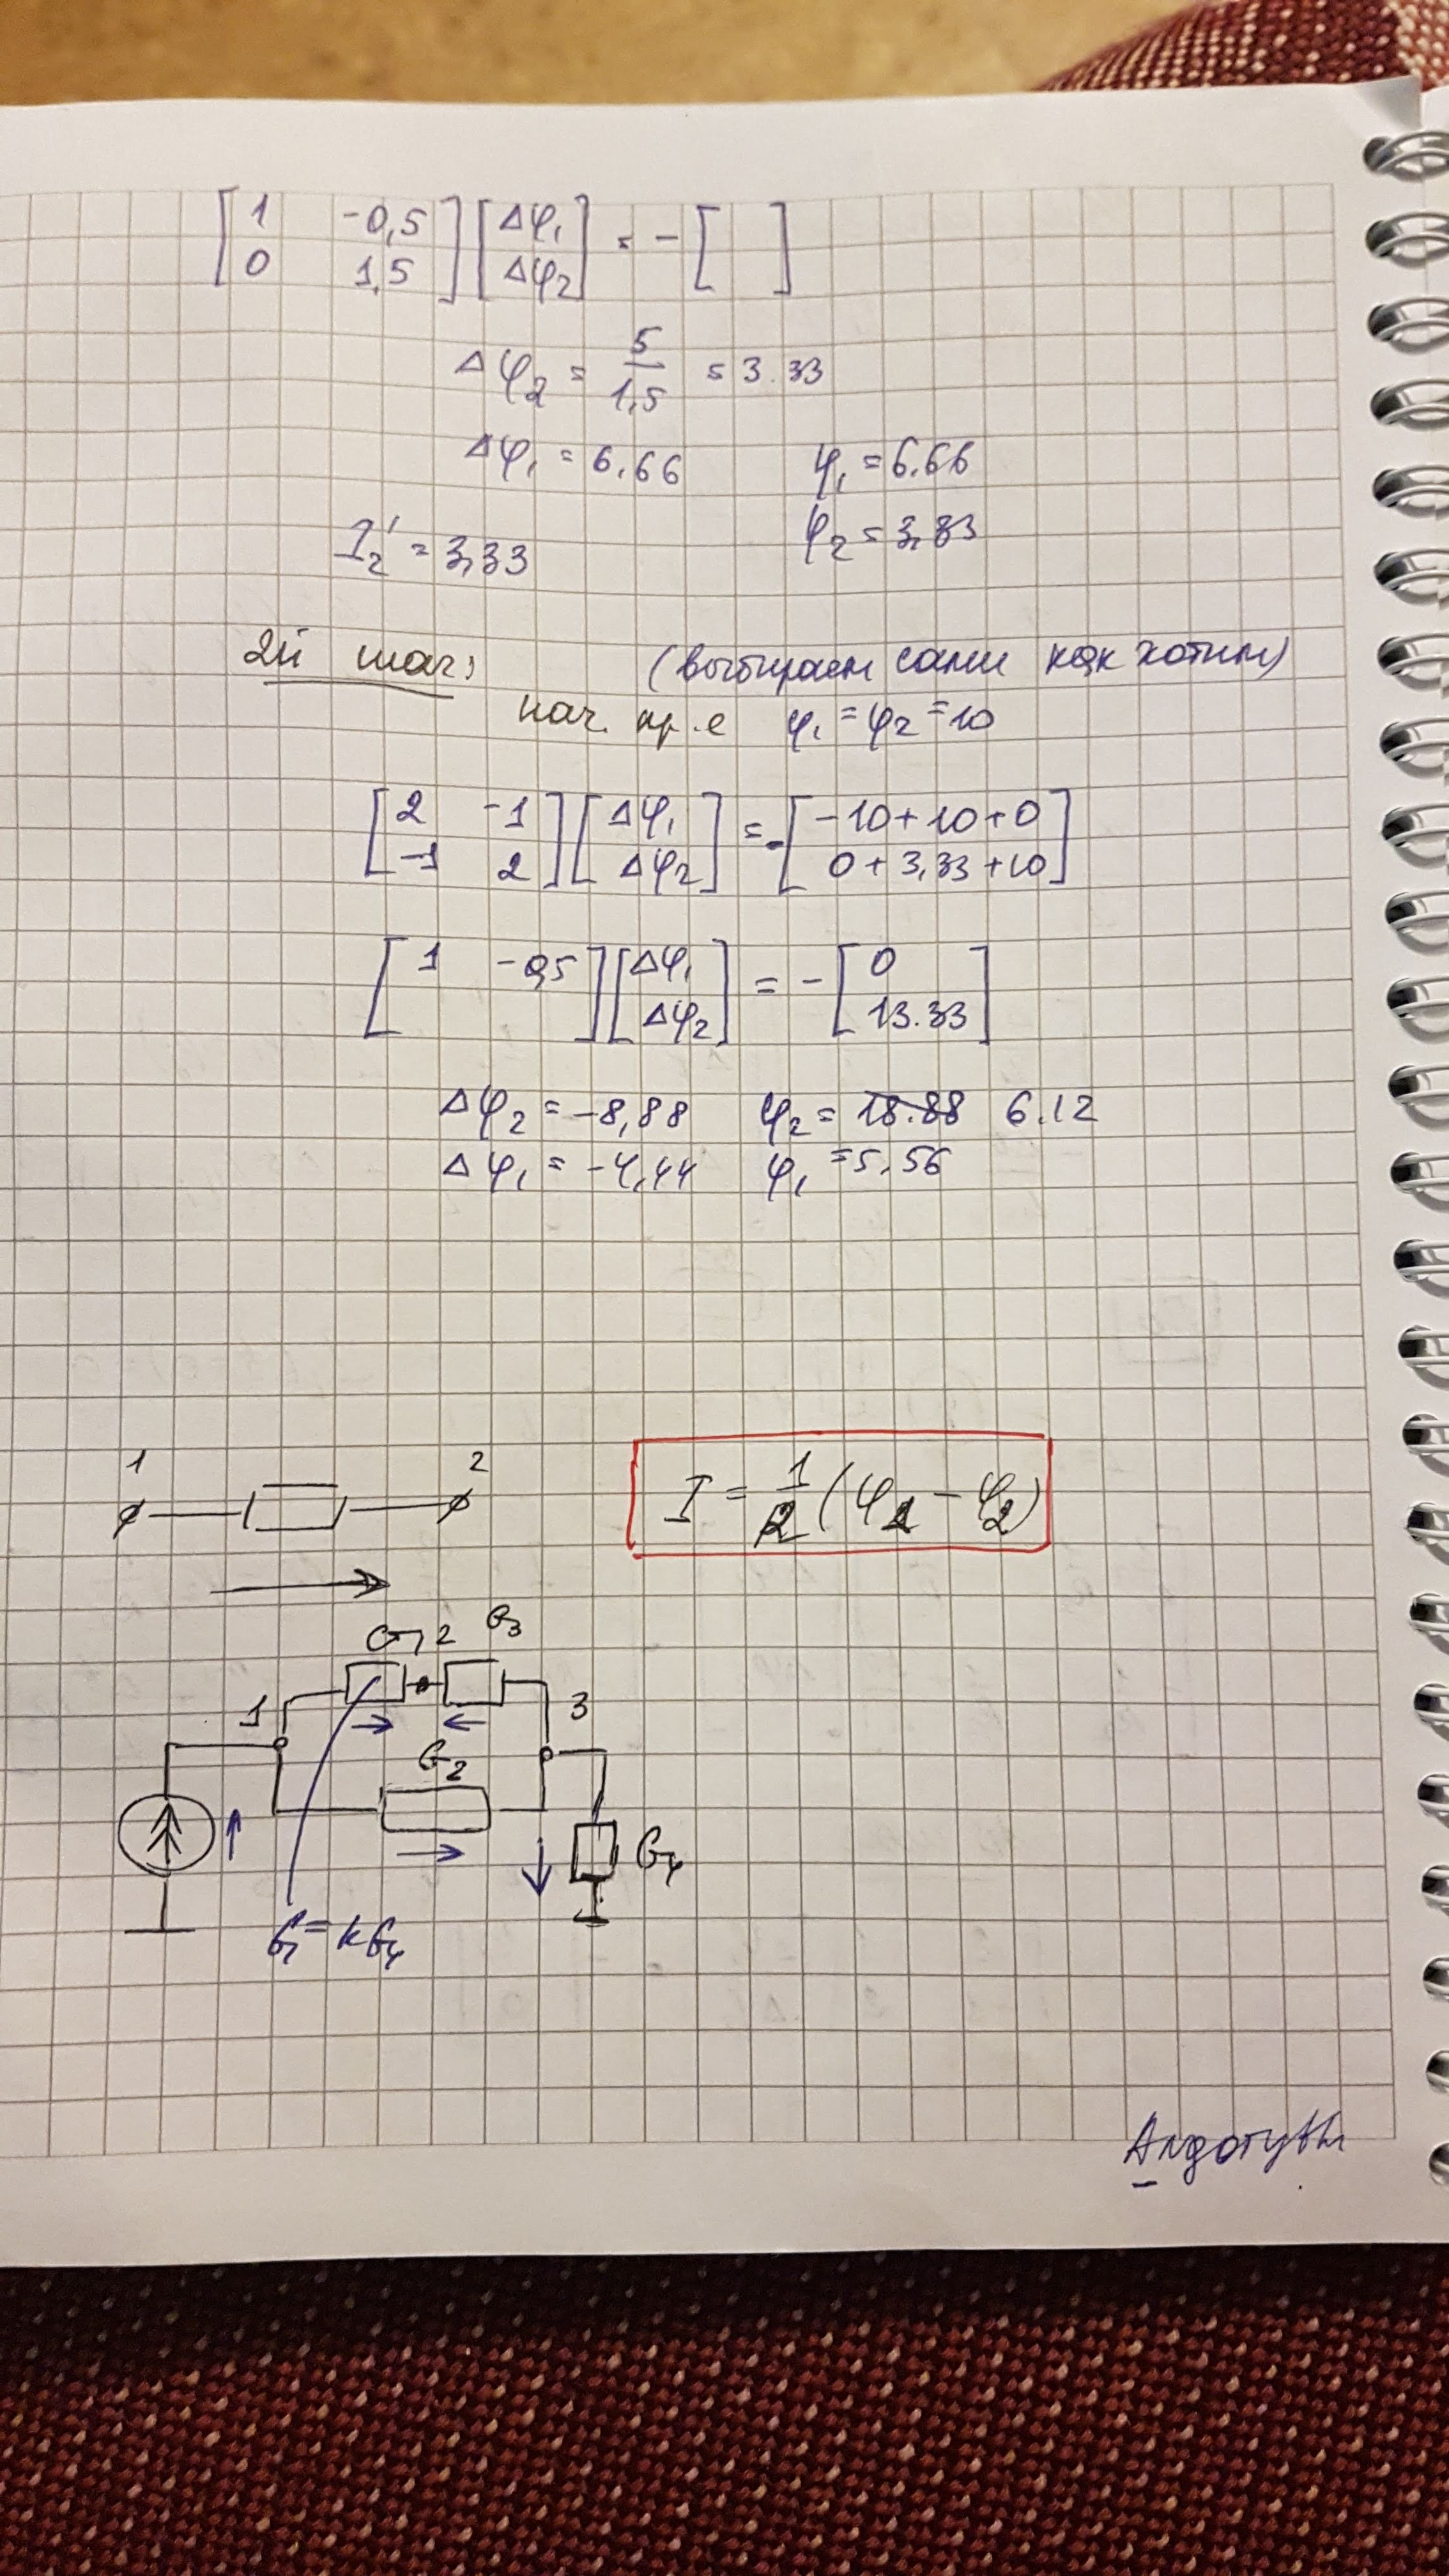 [1 -0,5] [Δφ₁] = - [ ]
[0 1,5] [Δφ₂]
Δφ₂ = 5/1,5 = 3.33
Δφ₁ = 6,66 φ₁ = 6.66
I₂' = 3,33 φ₂ = 3,33
2й шаг: (выбираем сами как хотим)
нач. пр.е φ₁ = φ₂ = 10
[2 -1] [Δφ₁] = - [-10+10+0]
[-1 2] [Δφ₂] [0+3,33+10]
[1 -0,5] [Δφ₁] = - [0]
[Δφ₂] [13.33]
Δφ₂ = -8,88 φ₂ = 18.88 6.12
Δφ₁ = -4,44 φ₁ = 5,56
1 2
I = 1/2 (φ₁ - φ₂)
G₁ 2 G₃
1 3
G₂
G₄
G₁ = kG₄